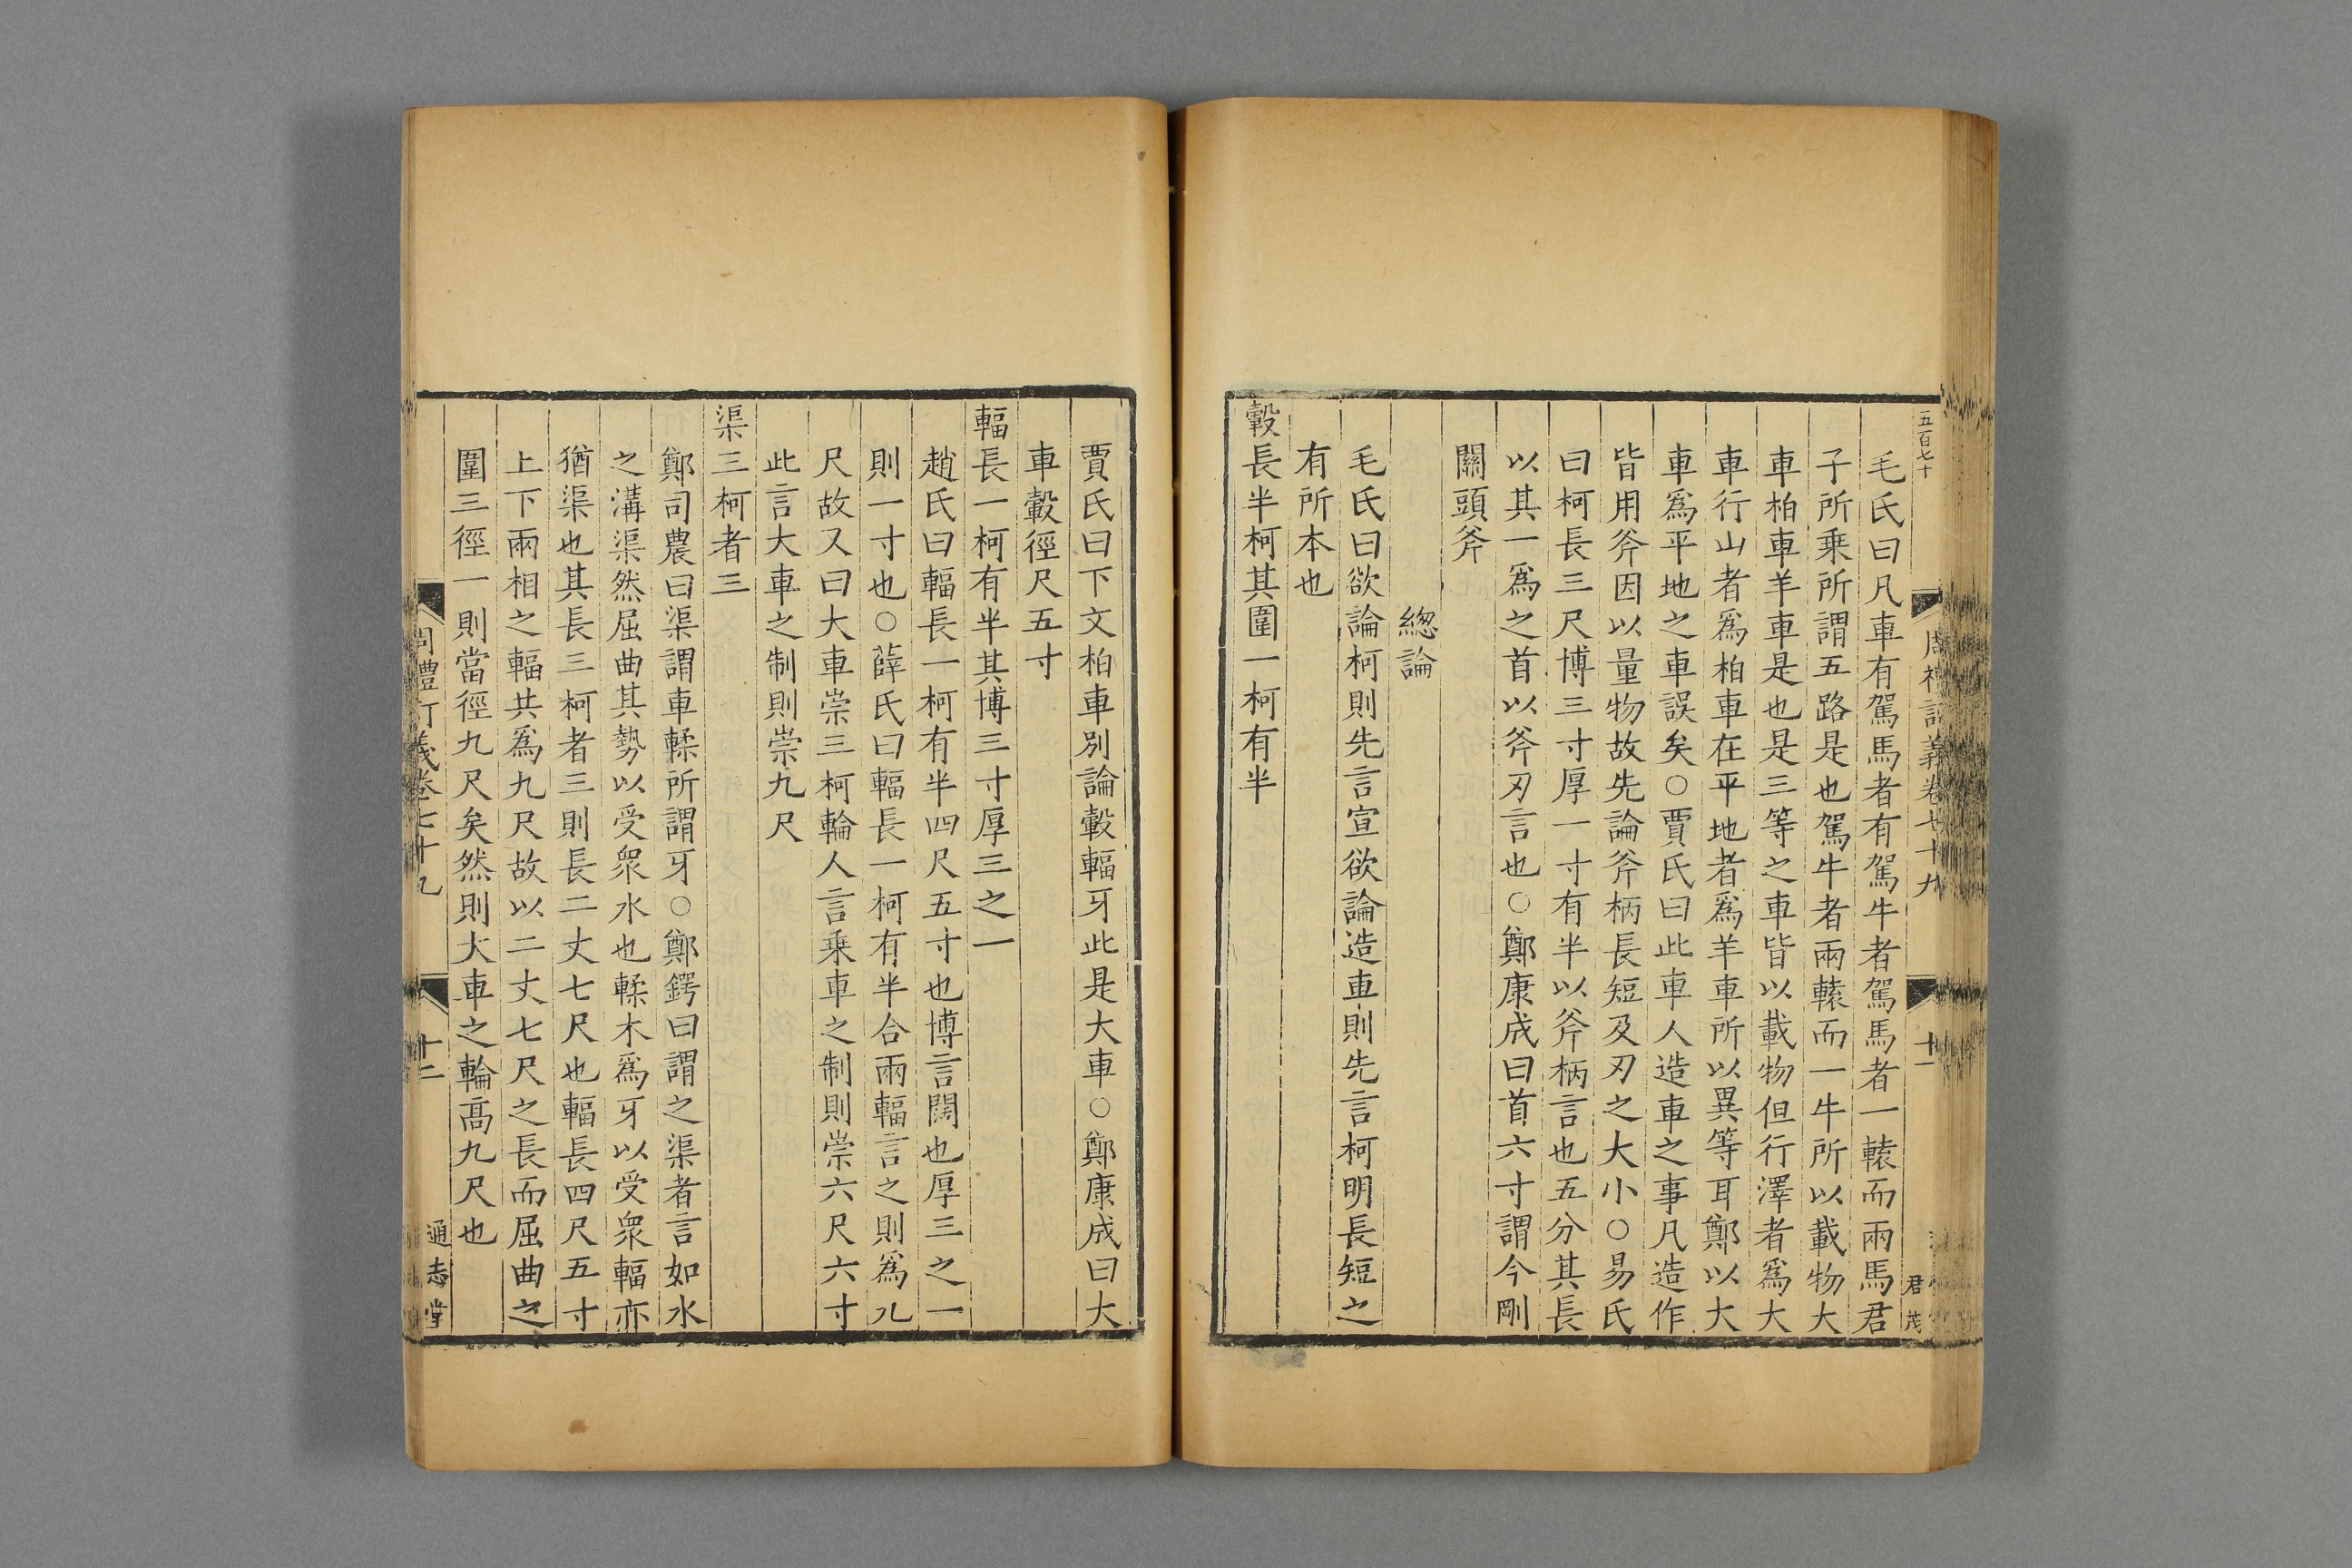 五百七十
周禮訂義卷七十九
十一
君茂
毛氏曰凡車有駕馬者有駕牛者駕馬者一轅而兩馬君
子所乘所謂五路是也駕牛者兩轅而一牛所以載物大
車柏車羊車是也是三等之車皆以載物但行澤者爲大
車行山者爲柏車在平地者爲羊車所以異等耳鄭以大
車爲平地之車誤矣○賈氏曰此車人造車之事凡造作
皆用斧因以量物故先論斧柄長短及刃之大小○易氏
曰柯長三尺博三寸厚一寸有半以斧柄言也五分其長
以其一爲之首以斧刃言也○鄭康成曰首六寸謂今剛
關頭斧
總論
毛氏曰欲論柯則先言宣欲論造車則先言柯明長短之
有所本也
轂長半柯其圍一柯有半
賈氏曰下文柏車別論轂輻牙此是大車○鄭康成曰大
車轂徑尺五寸
輻長一柯有半其博三寸厚三之一
趙氏曰輻長一柯有半四尺五寸也博言闊也厚三之一
則一寸也○薛氏曰輻長一柯有半合兩輻言之則爲九
尺故又曰大車崇三柯輪人言乘車之制則崇六尺六寸
此言大車之制則崇九尺
渠三柯者三
鄭司農曰渠謂車輮所謂牙○鄭鍔曰謂之渠者言如水
之溝渠然屈曲其勢以受衆水也輮木爲牙以受衆輻亦
猶渠也其長三柯者三則長二丈七尺也輻長四尺五寸
上下兩相之輻共爲九尺故以二丈七尺之長而屈曲之
圍三徑一則當徑九尺矣然則大車之輪高九尺也
周禮訂義卷七十九
十二
通志堂